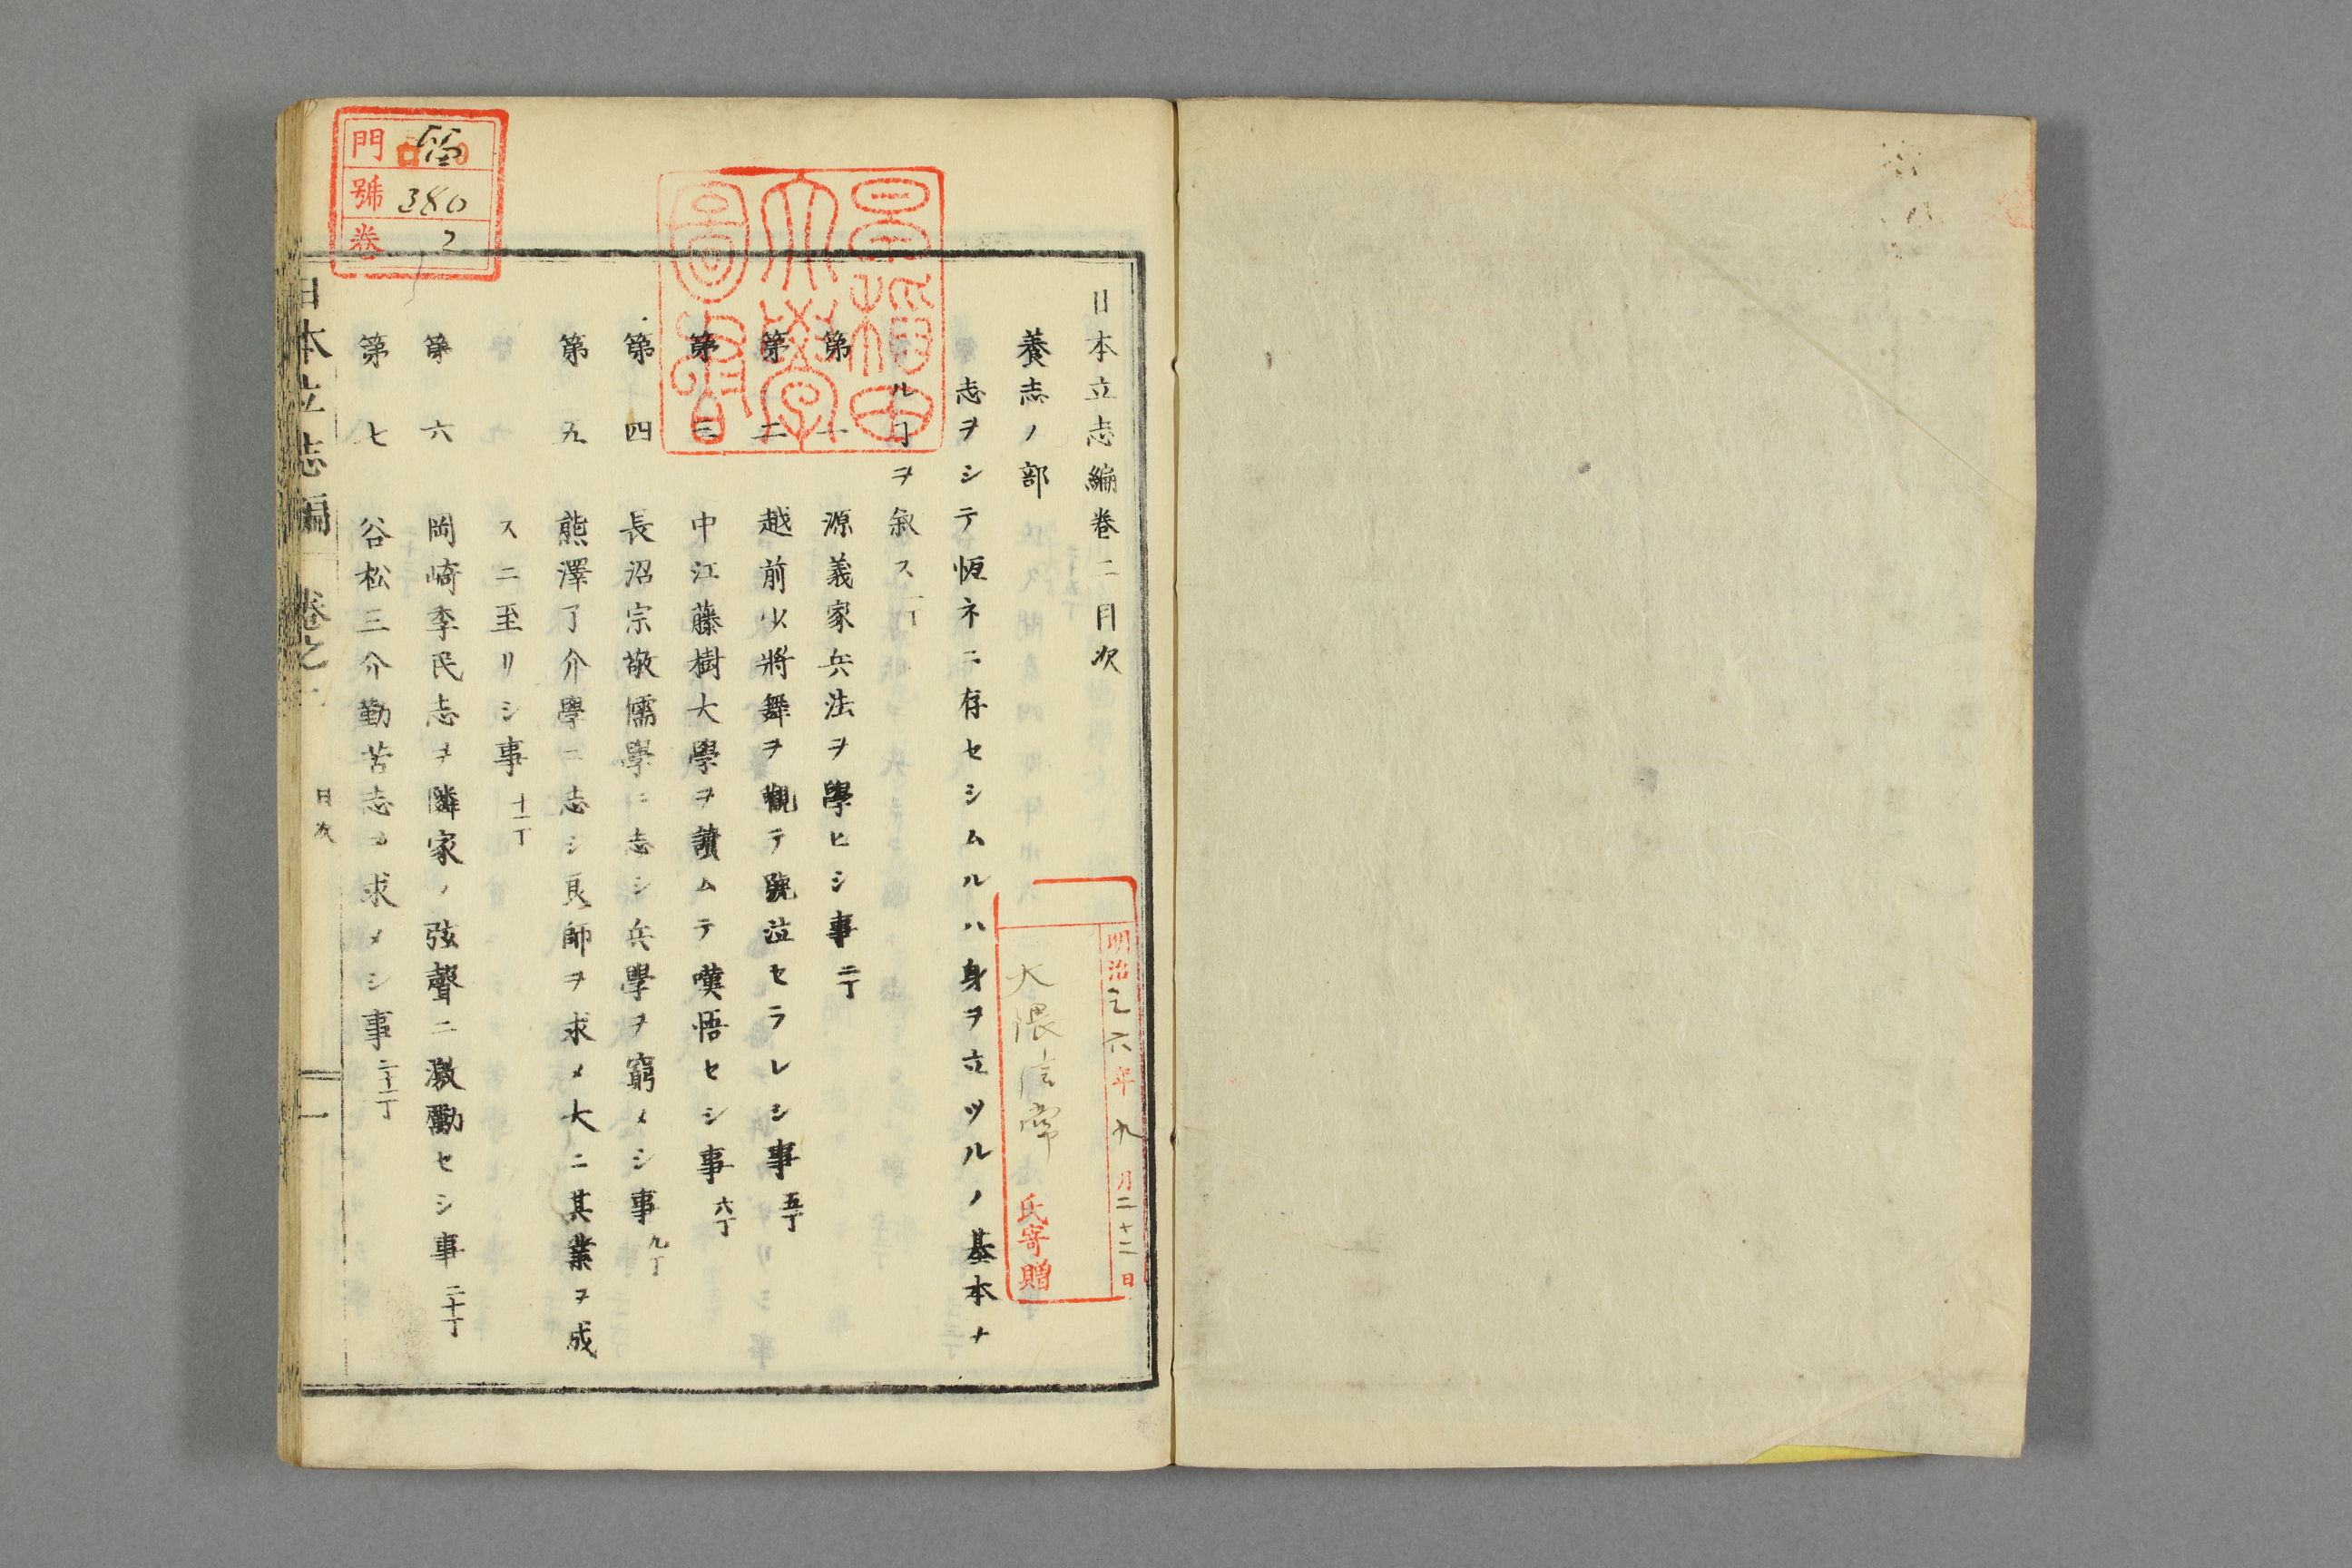 日本立志編卷二目次
養志ノ部
志ヲシテ恆ネニ存セシムルハ身ヲ立ツルノ基本ナ
ルヿヲ叙ス 一丁
第一 源義家兵法ヲ學ヒシ事 二丁
第二 越前少將舞ヲ觀テ號泣セラレシ事 五丁
第三 中江藤樹大學ヲ讀ムテ嘆悟セシ事 六丁
第四 長沼宗敬儒學ニ志シ兵學ヲ窮メシ事 九丁
第五 熊澤了介學ニ志シ良師ヲ求メ大ニ其業ヲ成
スニ至リシ事 十一丁
第六 岡崎李民志ヲ隣家ノ弦聲ニ激勵セシ事 二十丁
第七 谷松三介勤苦志ヲ求メシ事 二十一丁
日本立志編 卷之二 目次 一
早稲田
大學
圖書
明治 六年九月二十二日
大隈信常 氏寄贈
門
號 380
卷 2